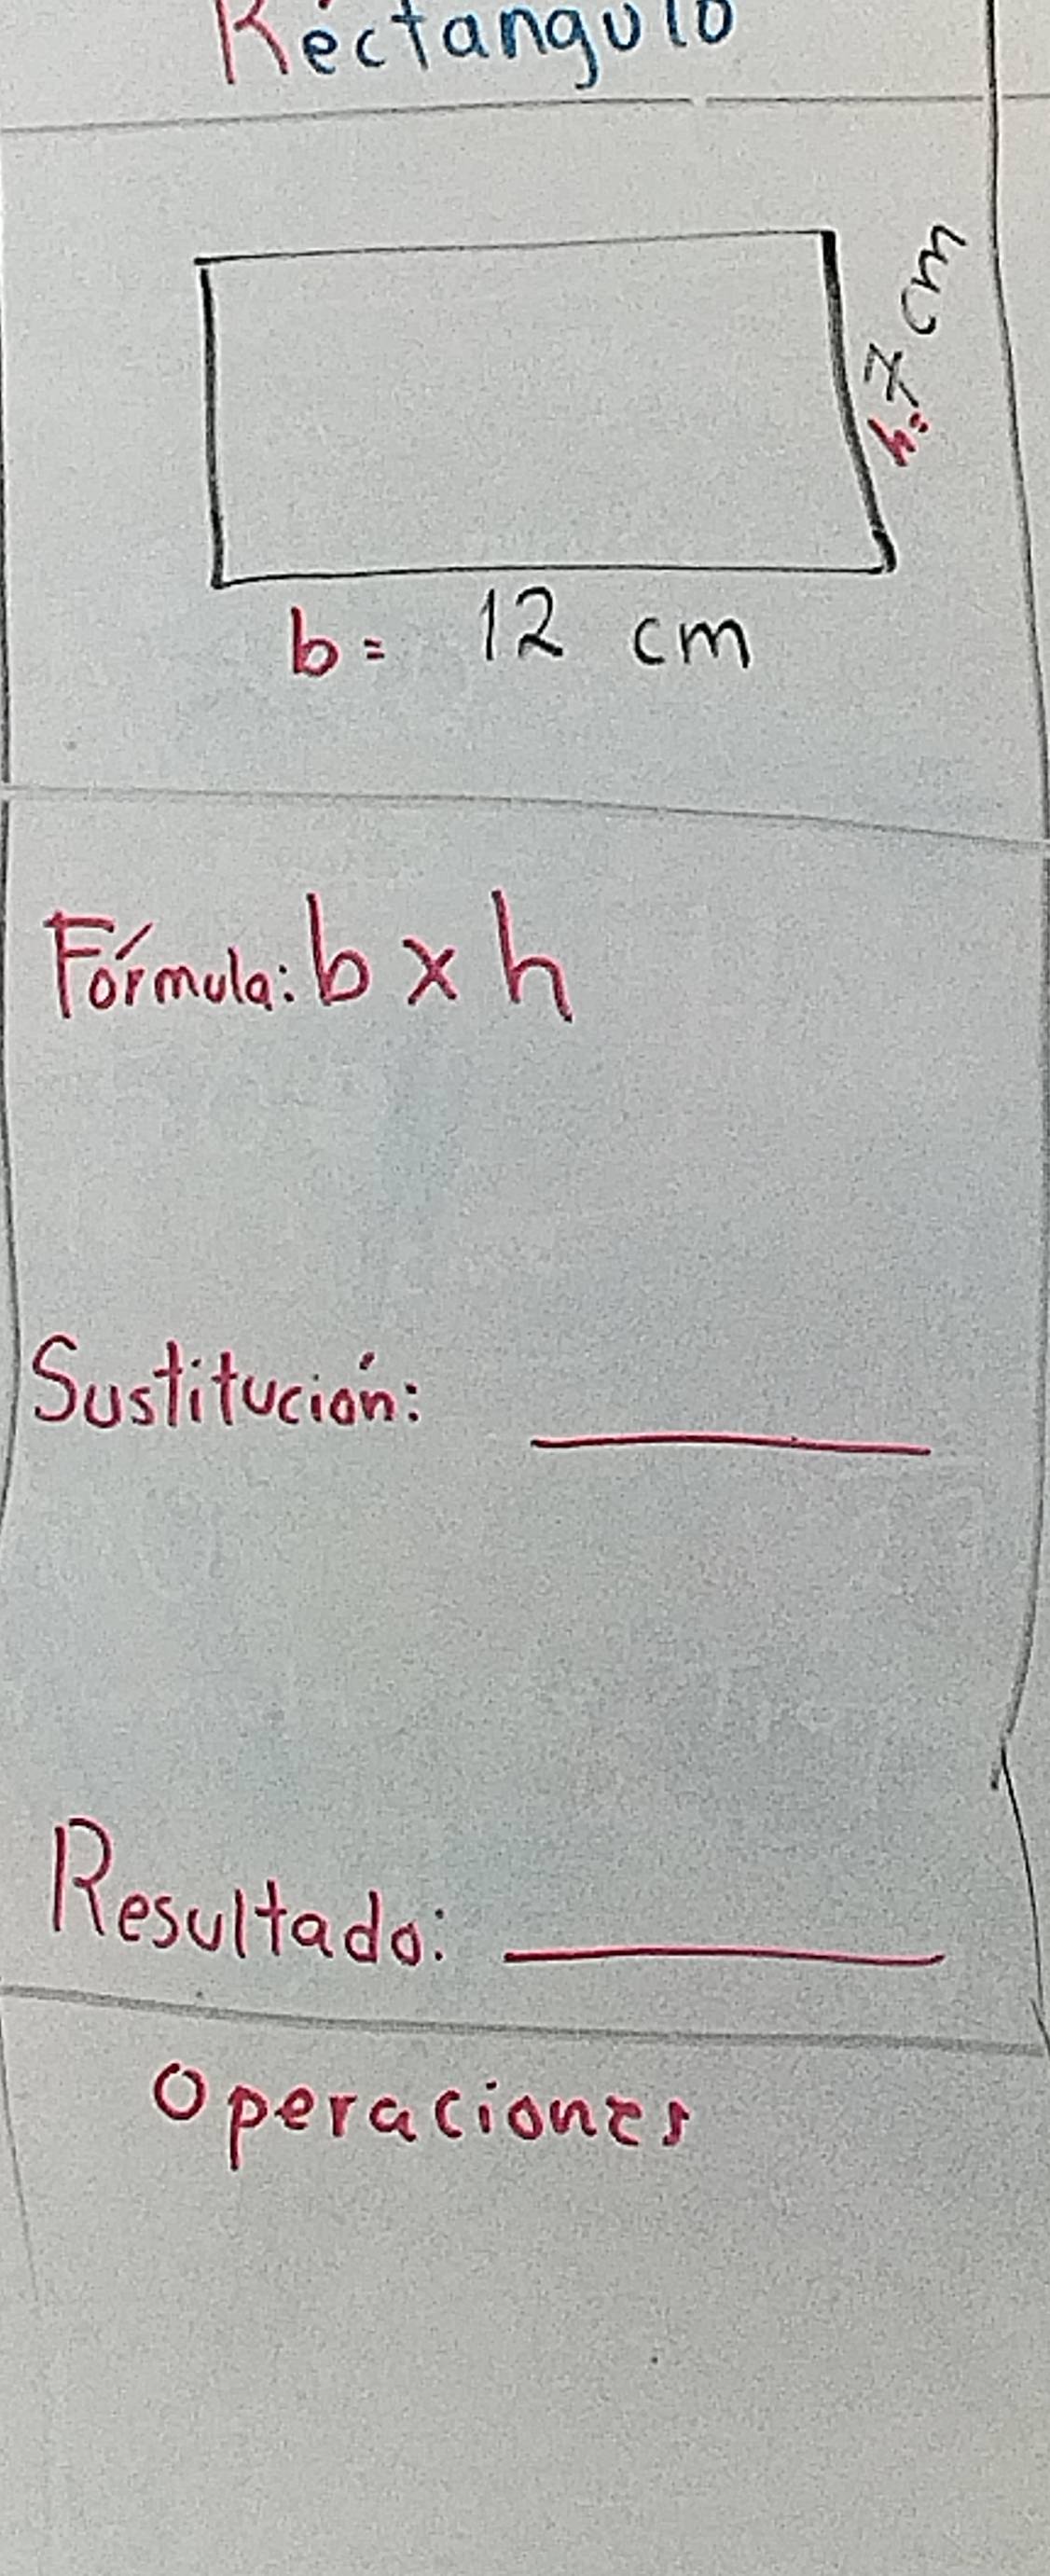 Réctangulo
h= 7 cm
b= 12 cm
Fórmula: b x h
Sustitución:
Resultado:
Operaciones